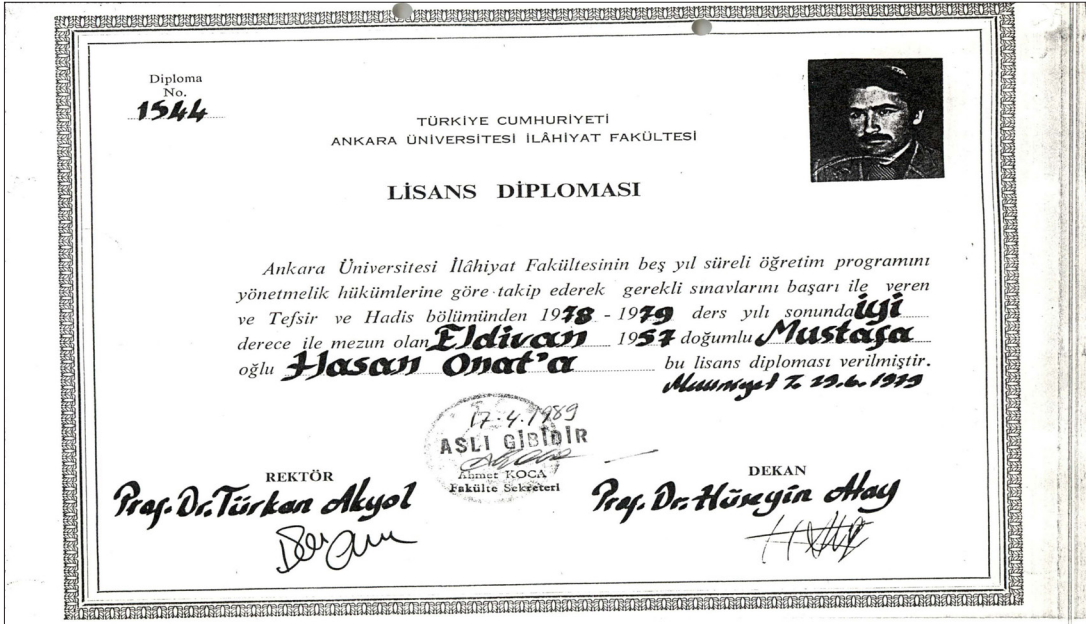 Diploma
No.
1544
TÜRKİYE CUMHURİYETİ
ANKARA ÜNİVERSİTESİ İLÂHİYAT FAKÜLTESİ
LİSANS DİPLOMASI
Ankara Üniversitesi İlâhiyat Fakültesinin beş yıl süreli öğretim programını
yönetmelik hükümlerine göre takip ederek gerekli sınavlarını başarı ile veren
ve Tefsir ve Hadis bölümünden 1978 - 1979 ders yılı sonunda iyi
derece ile mezun olan Eldivan 1957 doğumlu Mustafa
oğlu Hasan Onat'a bu lisans diploması verilmiştir.
29.6.1979
17.4.1989
ASLI GİBİDİR
Ahmet KOCA
Fakülte Sekreteri
REKTÖR
Prof. Dr. Türkan Akyol
DEKAN
Prof. Dr. Hüseyin Atay